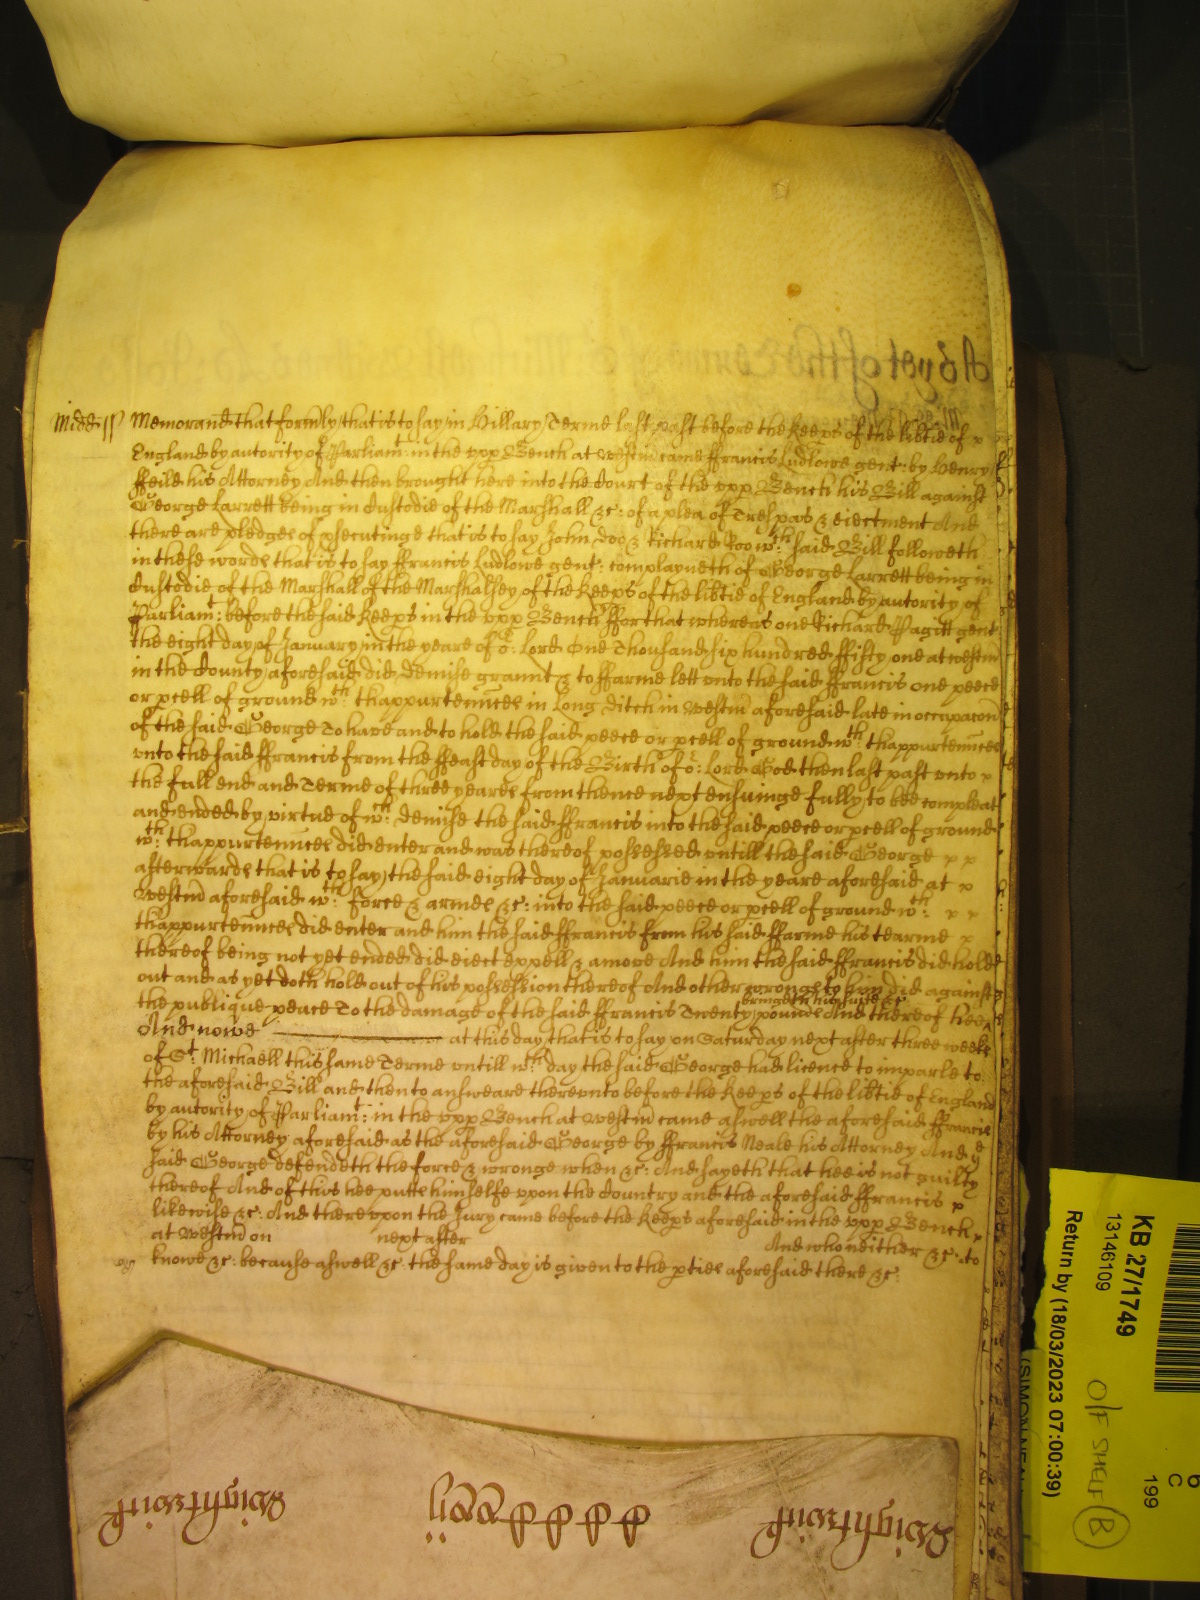 Midd ss Memorand that formly that is to say in Hillary Terme last past before the Keeps of the libtie of
England by autority of Parliamt: in the vpp Bench at Westm came ffrancis Ludlowe gent: by Henry
ffeild his Attorney And then brought here into the Court of the vpp Bench his Bill against
George Larrett being in Custodie of the Marshall &c: of a plea of Trespas & eiectment And
there are pledges of psecutinge that is to say John Doo & Richard Roo wch said Bill followeth
in these wordes that is to say ffrancis Ludlowe gent: complayneth of George Larrett being in
Custodie of the Marshall of the Marshalsey of the Keeps of the libtie of England by autority of
Parliamt: before the said Keeps in the vpp Bench ffor that whereas one Richard Pagitt gent
the eight day of January in the yeare of or: Lord One Thousand six hundred ffifty one at Westm
in the County aforesaid did demise graunt & to ffarme lett vnto the said ffrancis one peece
or pcell of ground wth: thappurtennces in Long ditch in Westm aforesaid late in occupacon
of the said George To have and to hold the said peece or pcell of ground wth: thappurtennces
vnto the said ffrancis from the ffeast day of the Birth of or: Lord God then last past vnto
the full end and Terme of three yeares from thence next ensuinge fully to bee compleat
and ended by virtue of wch: demise the said ffrancis into the said peece or pcell of ground
wth: thappurtennces did enter and was thereof possessed vntill the said George
afterwardes that is to say the said eight day of Januarie in the yeare aforesaid at
Westm aforesaid wth: force & armes &c: into the said peece or pcell of ground wth:
thappurtennces did enter and him the said ffrancis from his said ffarme his tearme
thereof being not yet ended did eiect expell & amove And him the said ffrancis did hold
out and as yet doth hold out of his possession thereof And other wronges to him did against
the publique peace To the damage of the said ffrancis Twenty poundes And thereof hee
bringeth his suite &c
And nowe at this day that is to say on Saturday next after three weekes
of St: Michaell this same Terme vntill wch: day the said George had licence to imparle to
the aforesaid Bill and then to answeare therevnto before the Keeps of the libtie of England
by autority of Parliamt: in the vpp Bench at Westm came aswell the aforesaid ffrancis
by his Attorney aforesaid as the aforesaid George by ffrancis Neale his Attorney And ye
said George defendeth the force & wronge when &c: And sayeth that hee is not guilty
thereof And of this hee putts himselfe vpon the Country and the aforesaid ffrancis
likewise &c: And therevpon the Jury came before the Keeps aforesaid in the vpp Bench
at Westm on next after And who neither &c: to
knowe &c: because aswell &c: the same day is given to the pties aforesaid there &c:
Wightwick Wightwick
KB 27/1749
13146109
Return by (18/03/2023 07:00:39)
O/F SHELF
B
6
C
199